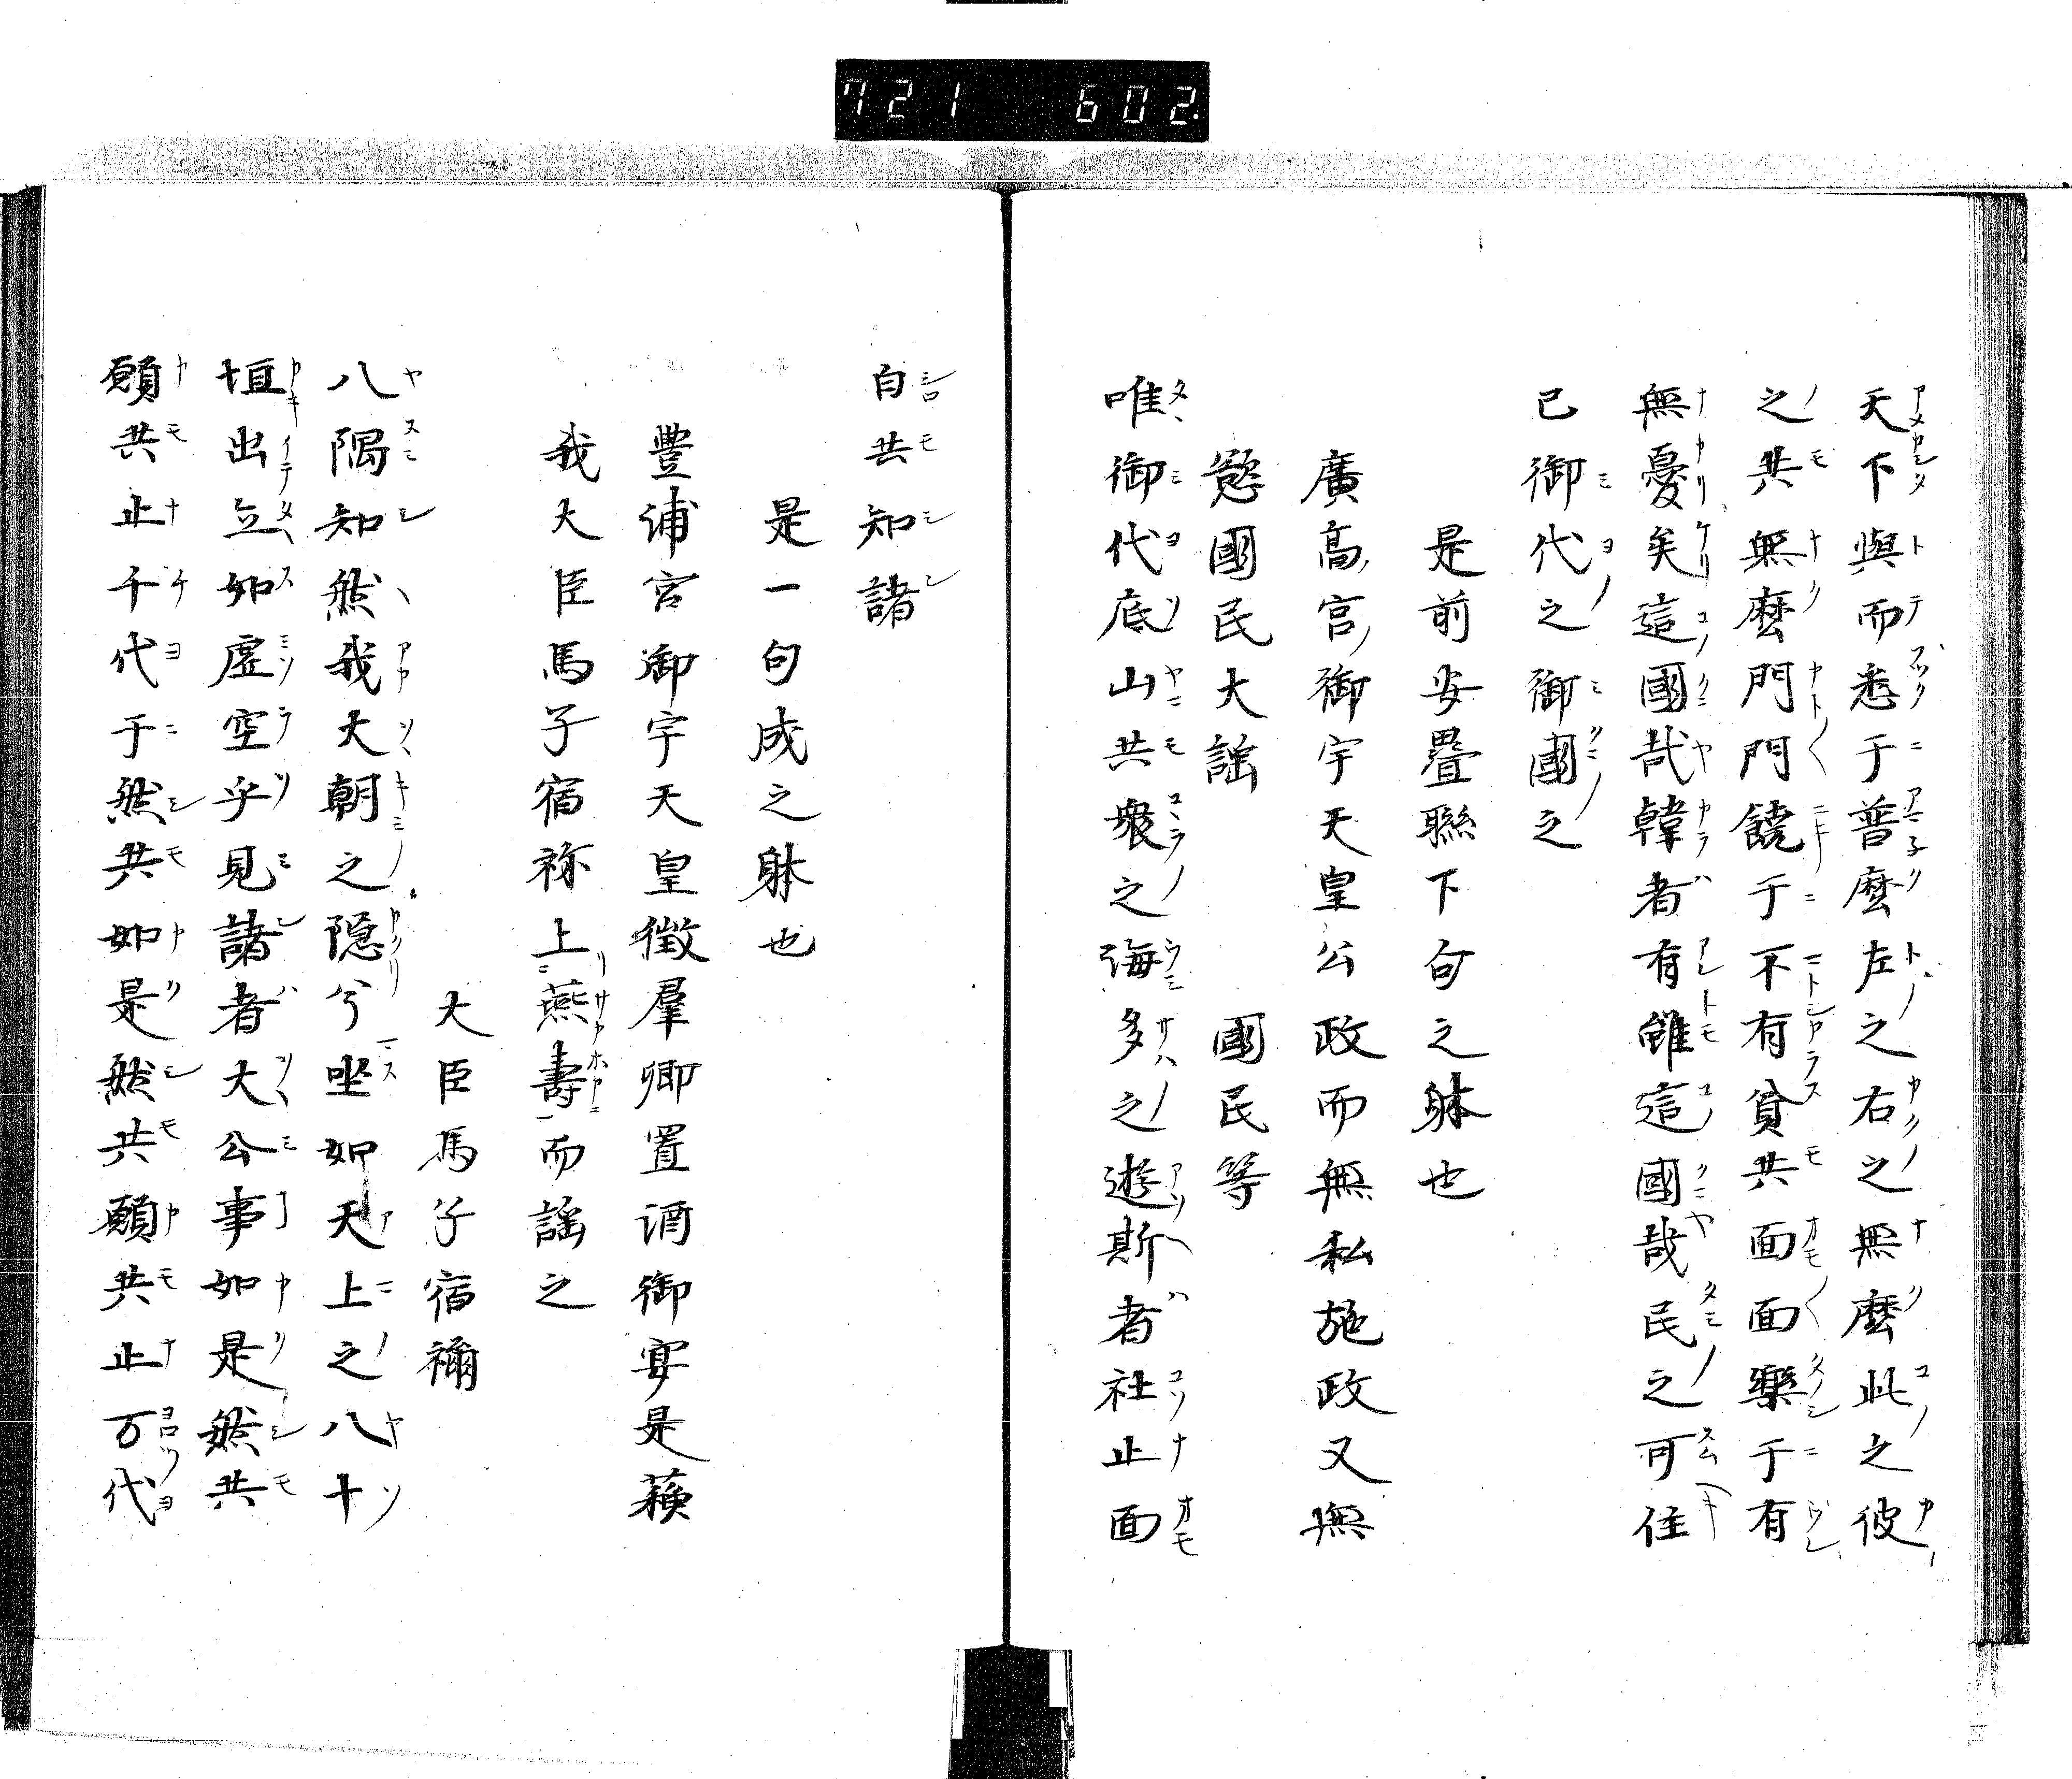 721 602.
天下與而悉于普麼左之右之無麼此之彼
之共無麼門門饒于不有貧共面面樂于有
無憂矣這國哉韓者有雖這國哉民之可住
已御代之御國之
是前安疊聯下句之躰也
廣高宮御宇天皇公政而無私施政又無
慾國民大謡 國民等
唯御代底山共衆之海多之遊斯者社止面
白共知諸
是一句成之躰也
豐浦宮御宇天皇徵羣卿置酒御宴是蘓
我大臣馬子宿祢上燕壽而謡之
大臣馬子宿禰
八隅知然我大朝之隠兮坐如天上之八十
垣出立如虛空乎見諸者大公事如是然共
願共止千代于然共如是然共願共止万代